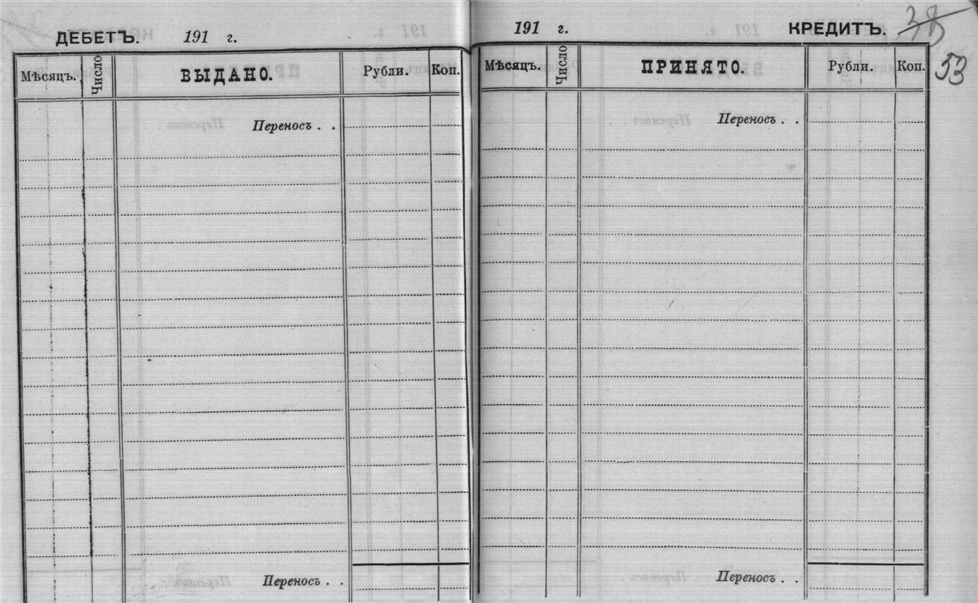 ДЕБЕТЪ. 191 г.
Мѣсяцъ. Число ВЫДАНО. Рубли. Коп.
Переносъ . .
Переносъ . .
191 г. КРЕДИТЪ. 38
53
Мѣсяцъ. Число ПРИНЯТО. Рубли. Коп.
Переносъ . .
Переносъ . .